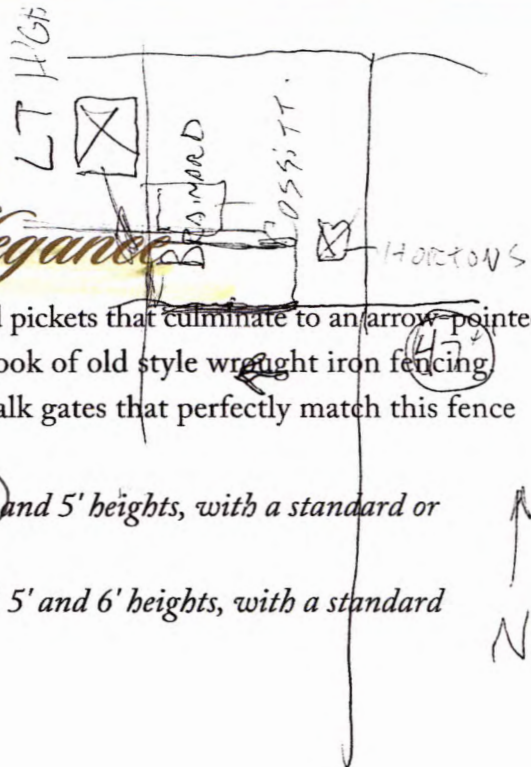 LT HSE
BRAINARD
COSSITT.
HORTONS
egance
pickets that culminate to an arrow-pointe
ook of old style wrought iron fencing
47
alk gates that perfectly match this fence
and 5' heights, with a standard or
5' and 6' heights, with a standard
N